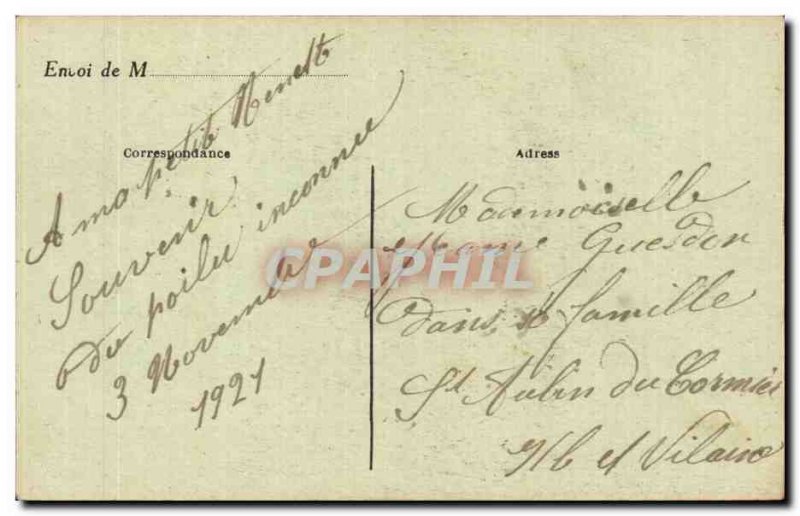 Envoi de M
Correspondance
A ma petite
Souvenir
du poilu inconnu
3 Novembre
1921
Adress
Mademoiselle
Marie Guesdon
dans sa famille
St Aubin du Cormier
Ille et Vilaine
CPAPHIL